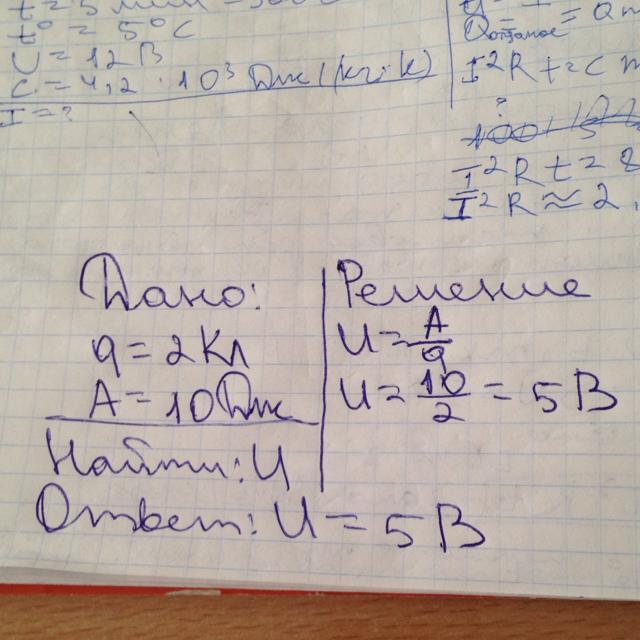 t° = 5°C
U = 12 В
C = 4,2 · 10³ Дж/(кг·К)
I = ?
I² R t = c m
I² R t = 
I² R ≈ 2
Дано:
q = 2 Кл
A = 10 Дж
Найти: U
Решение
U = A/q
U = 10/2 = 5 В
Ответ: U = 5 В